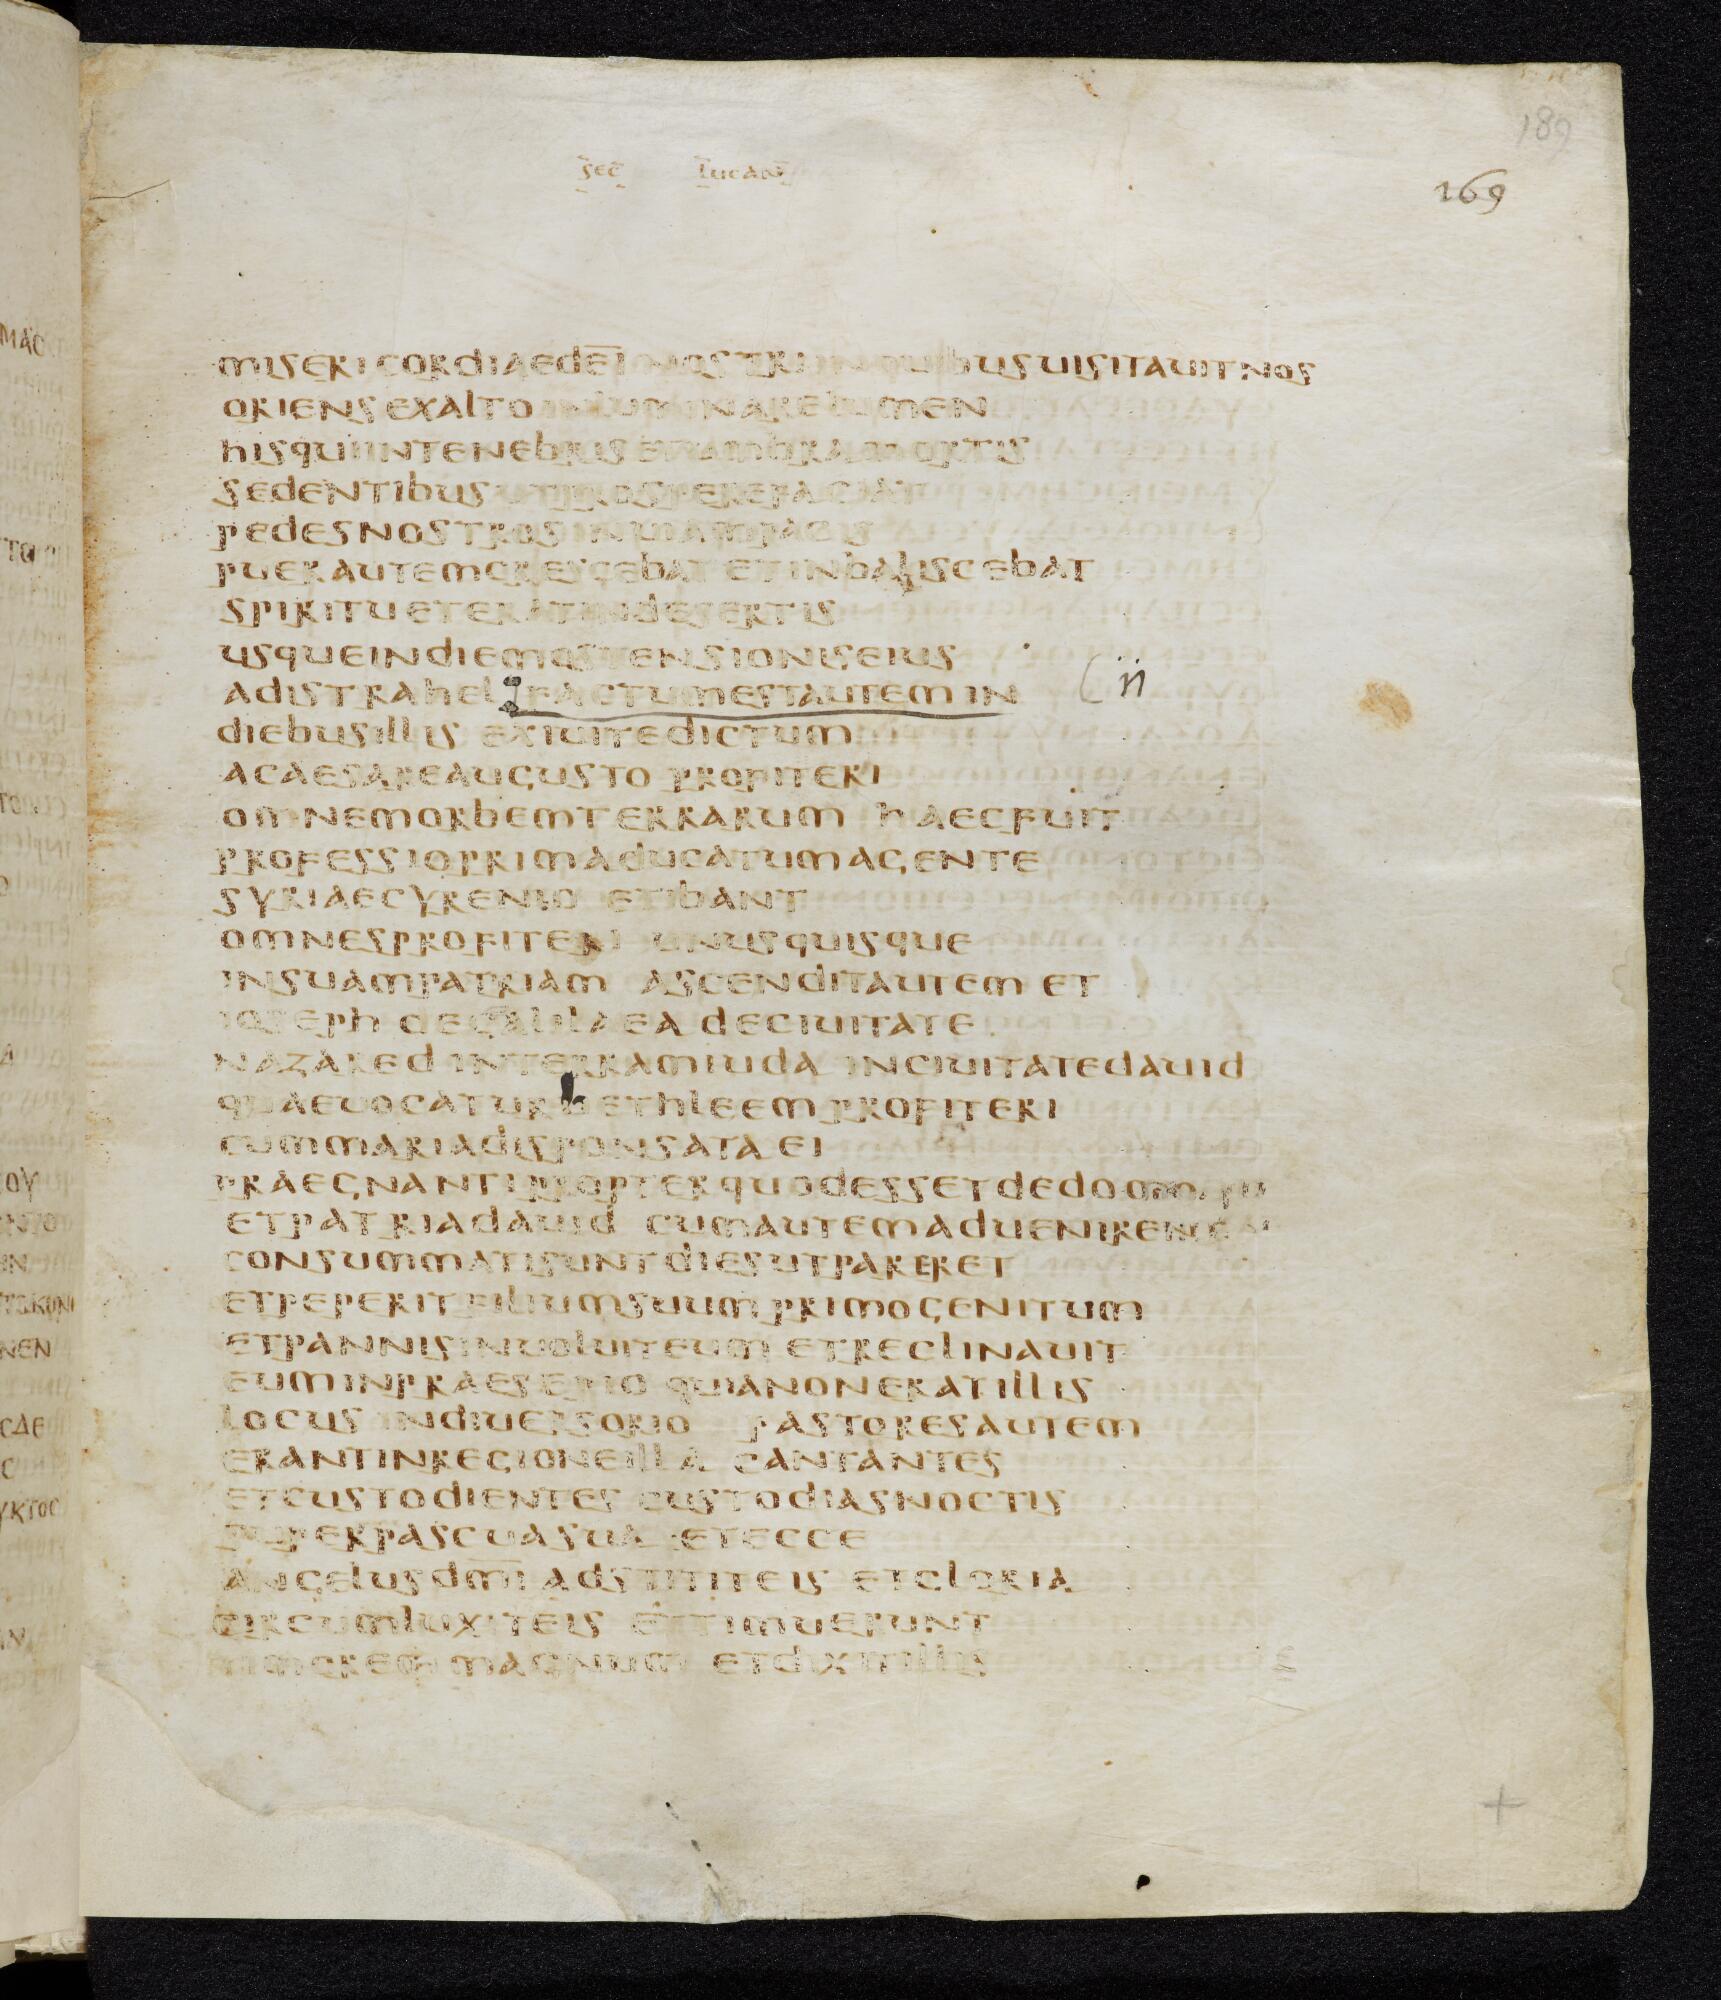 189
sec lucan
169
misericordiaedei nostri in quibusuisitauitnos
oriensexalto inluminarelumen
hisquiintenebrisetumbramortis
sedentibus utprosperefaciat
pedesnostros inuiampacis
puerautemcrescebat etinbaliscebat
spiritueteratindesertis
usqueindiemostensioniseius
adistrahel factumestautemin ii
diebusillis exiuitedictum
acaesareaugusto profiteri
omnemorbemterrarum haecfuit
professioprimaducatumagente
syriaecyrenio etibant
omnesprofiteri unusquisque
insuampatriam ascenditautem et
ioseph degalilaea deciuitate
nazared interramiuda inciuitatedauid
quaeuocaturbethleem profiteri
cummariadisponsata ei
praegnanti propterquodessetdedomo
etpatriadauid cumautemaduenirent
consummatisuntdiesutpareret
etpeperit filiumsuumprimogenitum
etpannisinuoluiteum etreclinauit
euminpraesepio quianoneratillis
locus indiuersorio pastoresautem
erantinregioneilla cantantes
etcustodientes custodiasnoctis
superpascuasua etecce
angelusdmi adstititeis etgloria
circumluxiteis ettimuerunt
timorem magnum etdixitillis